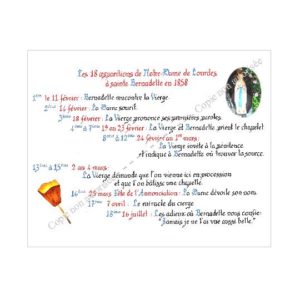 Les 18 apparitions de Notre-Dame de Lourdes
à sainte Bernadette en 1858
1ère le 11 février : Bernadette rencontre la Vierge
2ème 14 février : La Dame sourit.
3ème 18 février : La Vierge prononce ses premières paroles.
4ème 19 au 23 février : La Vierge et Bernadette prient le chapelet
8ème à 12ème 24 février au 1er mars :
La Vierge invite à la pénitence
et indique à Bernadette où trouver la source.
13ème à 15ème 2 au 4 mars :
La Vierge demande que l'on vienne ici en procession
et que l'on bâtisse une chapelle.
16ème 25 mars Fête de l'Annonciation : La Dame dévoile son nom.
17ème 7 avril : Le miracle du cierge
18ème 16 juillet : Les adieux où Bernadette nous confie :
"Jamais je ne l'ai vue aussi belle."
Copie non autorisée
Copie non autorisée